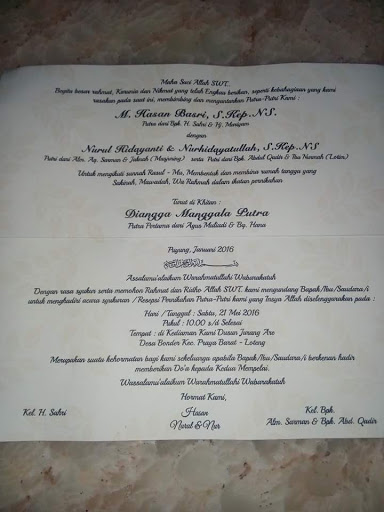 Maha Suci Allah SWT..
Begitu besar rahmat, Karunia dan Nikmat yang telah Engkau berikan, seperti kebahagiaan yang kami
rasakan pada saat ini, membimbing dan mengantarkan Putra-Putri Kami :
M. Hasan Basri, S.Kep.NS.
Putra dari Bpk. H. Sahri & Hj. Maniyam
dengan
Nurul Hidayanti & Nurhidayatullah, S.Kep.NS
Putri dari Alm. Aq. Sarman & Jakrah ( ) serta Putri dari Bpk. Abdul Qadir & Ibu (Loteng)
Untuk mengikuti sunnah Rasul - Mu, Membentuk dan membina rumah tangga yang
Sakinah, Mawadah, Wa Rahmah dalam ikatan pernikahan
Turut di Khitan :
Diangga Manggala Putra
Putra Pertama dari Agus Muliadi & Bq. Hana
Puyung, Januari 2016
Assalamu'alaikum Warahmatullahi Wabarakatuh
Dengan rasa syukur serta memohon Rahmat dan Ridho Allah SWT. kami mengundang Bapak/Ibu/Saudara/i
untuk menghadiri acara syukuran / Resepsi Pernikahan Putra-Putri kami yang Insya Allah diselenggarakan pada :
Hari / Tanggal : Sabtu, 21 Mei 2016
Pukul : 10.00 s/d Selesai
Tempat : di Kediaman Kami Dusun Jorong Are
Desa Bonder Kec. Praya Barat - Loteng
Merupakan suatu kehormatan bagi kami sekeluarga apabila Bapak/Ibu/Saudara/i berkenan hadir
memberikan Do'a kepada Kedua Mempelai.
Wassalamu'alaikum Warahmatullahi Wabarakatuh
Hormat Kami,
Kel. H. Sahri
Hasan
Nurul & Nur
Kel. Bpk.
Alm. Sarman & Bpk. Abd. Qadir